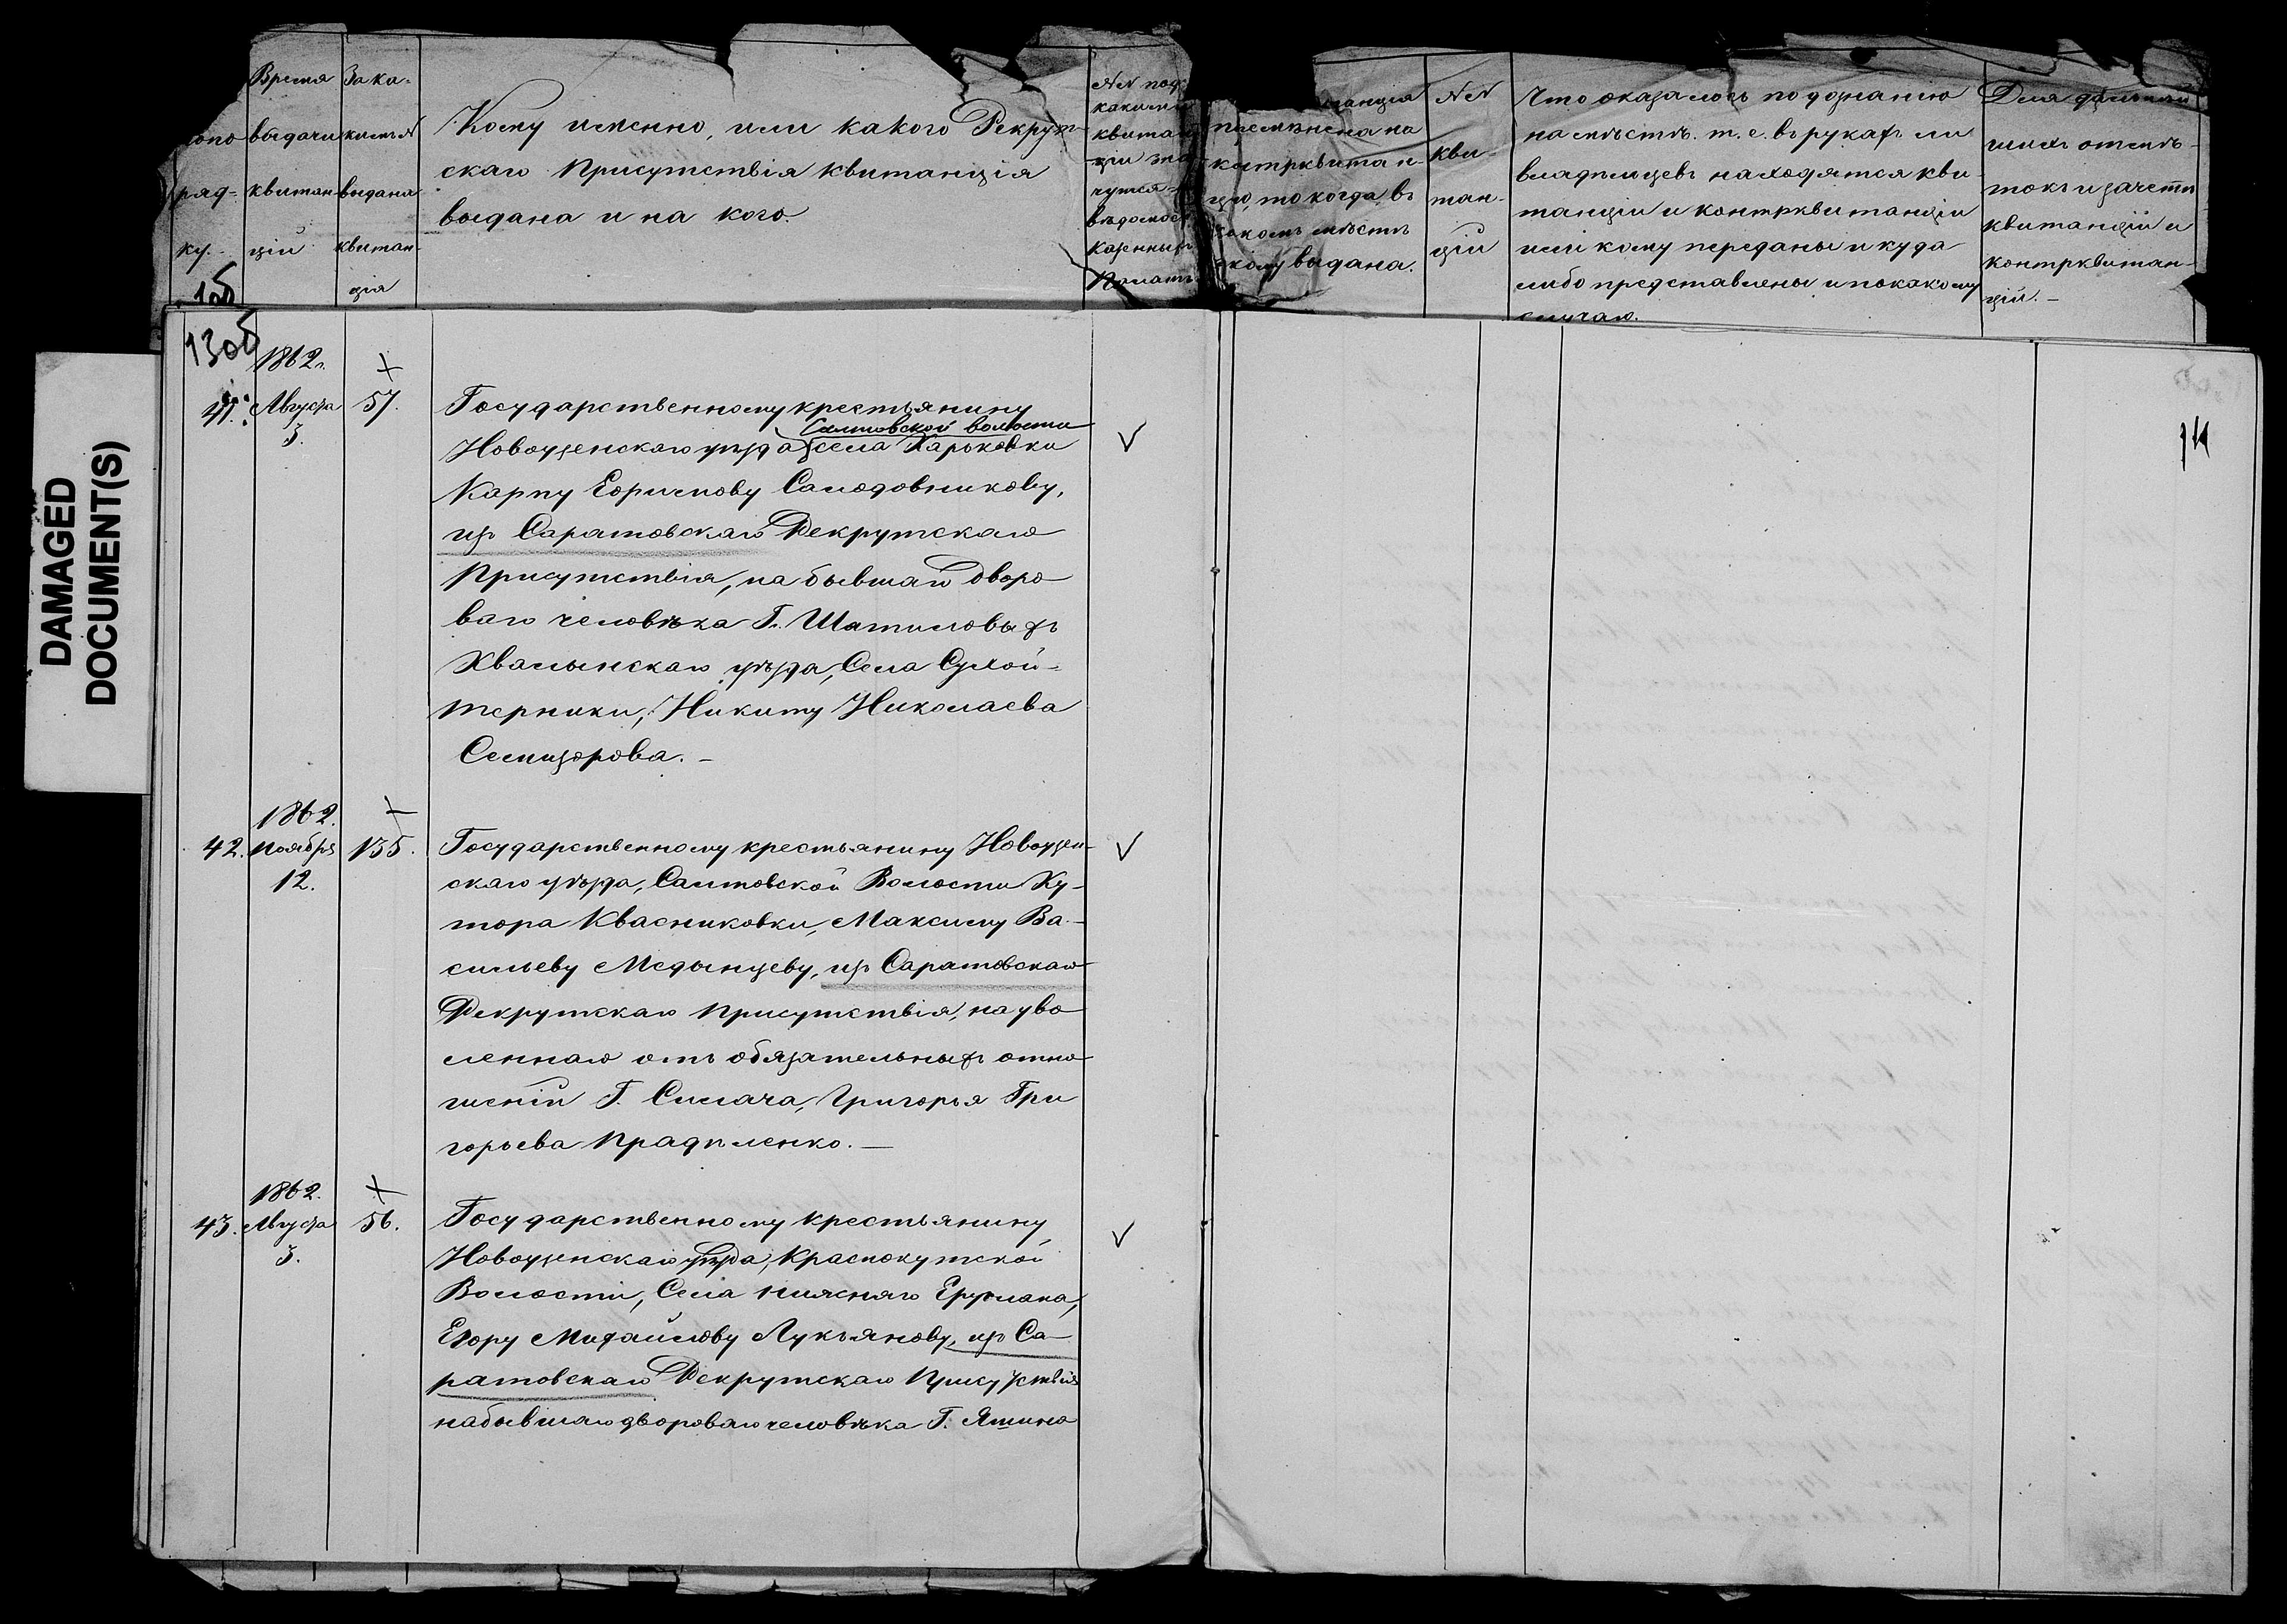 DAMAGED
DOCUMENT(S)
Время
выдачи
квитан
цій
За ка-
кимъ №
выдана
квитан-
ція
ряд-
ку.
Кому именно, или какого Рекрут-
скаго Присутствія квитанція
выдана и на кого.
№№ под
какими
квитан
ціи зна
чутся
ведомос
Казенныхъ
Палатъ
на
контрквитан-
цію, то когда въ
какомъ мѣстѣ
и кому выдана.
№№
кви-
тан-
цій
Что оказалось по дознанію
на мѣстѣ. т. е. въ рукахъ ли
владѣльцевъ находятся кви
танціи и контрквитанціи
или кому переданы и куда
либо представлены и по какому
случаю.
Для дальнѣй
шихъ отмѣ-
токъ и зачетѣ
квитанцій и
контрквитан-
цій. –
1об
13об
14
1862г.
41. Августа 57.
3.
Государственному крестьянину
Салтовской волости
Новоузенскаго уѣзда села Харьковки
Карпу Ефимову Самодовникову,
изъ Саратовскаго Рекрутскаго
Присутствія, на бывшаго дворо
ваго человѣка Г. Шатиловыхъ
Хвалынскаго уѣзда, Села Сухой-
терники, Никиту Николаева
Семизорова. –
1862.
42. Ноября 135.
12.
Государственному крестьянину Новоузен-
скаго уѣзда, Салтовской Волости Ху-
тора Квасниковки, Максиму Ва-
сильеву Медынцеву, изъ Саратовскаго
Рекрутскаго Присутствія, на уво
леннаго отъ обязательныхъ отно
шеній Г. Силача, Григорья Гри
горьева Прадѣленко. –
1862.
43. Августа 56.
3.
Государственному крестьянину
Новоузенскаго уѣзда, Краснокутской
Волости, Села Ерусланa,
Егору Михайлову Лукьянову, изъ Са-
ратовскаго Рекрутскаго Присутствія
на бывшаго двороваго человѣка Г. Яшина